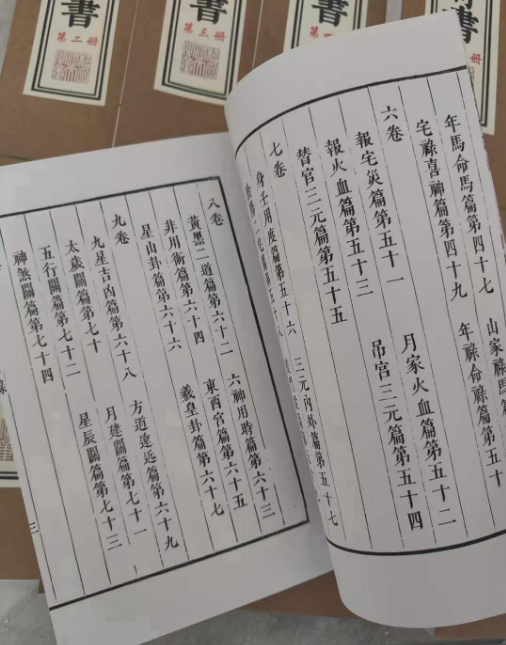 書
第二册
書
第三册
書
書
册
年馬命馬篇第四十七 山家祿馬篇第
宅祿喜神篇第四十九 年祿命祿篇第五十
六卷
報宅災篇第五十一 月家火血篇第五十二
報火血篇第五十三 吊宮三元篇第五十四
替宮三元篇第五十五
七卷
身壬用度篇第五十六 三元內外篇第五十七
八卷
黃黑二道篇第六十二 六神用時篇第六十三
非用術篇第六十四 東西宮篇第六十五
星山卦篇第六十六 義皇卦篇第六十七
九卷
九星吉凶篇第六十八 方道遠近篇第六十九
太歲關篇第七十 月建關篇第七十一
五行關篇第七十二 星辰關篇第七十三
神煞關篇第七十四